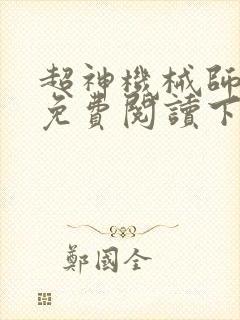 超神機械師
免費閱讀下
鄭國全